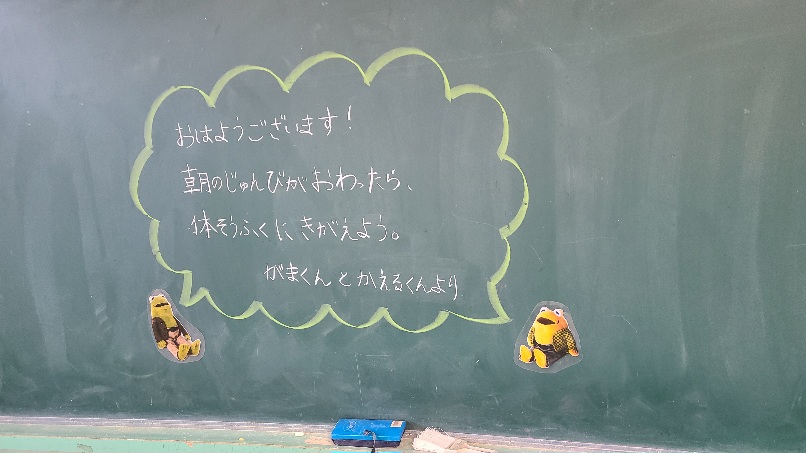 おはようございます！
朝のじゅんびがおわったら、
体そうふくにきがえよう。
がまくんとかえるくんより